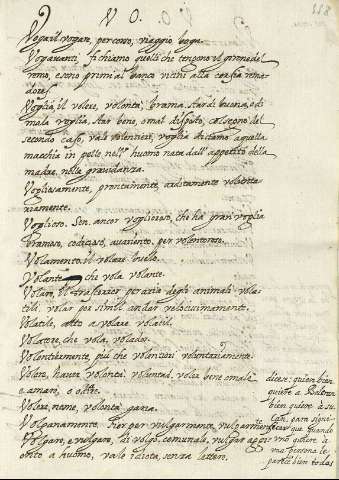 V O.
118
Voga il vogare, per corso, viaggio boga.
Vogavanti, si chiamo quelli che tengono il girone del
remo, e sono primi al banco vicini alla corsia rema-
dores.
Voglia, il volere, volontà, brama, star di buona, o di
mala voglia, star bene, o mal disposto, col segno del
secondo caso, vale volentieri, voglia diciamo a quella
macchia in pelle nell' huomo nata dall' appetito della
madre, nella gravidanza.
Vogliosamente, prontamente, arditamente volonta-
riamente.
Voglioso. Sen. ancor voglioroso, che ha gran voglia
bramoso, codicioso, avariento, per volonteroso.
Volamento, il volare buelo.
Volante che vola volante.
Volare, il trasferirsi per aria degli animali vola-
tili, volar per simil. andar velocissimamente.
Volatile, atto a volare volatil.
Volatore, che vola, volador.
Volentiermente, più che volentieri voluntariamente.
Volere, haver volontà voluntad, voler bene o male
e amar, o odiare
Volere, nome, volontà gana.
Volpanamente. Fier. per vulgarmente, vulgarmente
Volgare, e vulgare, di volgo, comunale, vulgar appo-
sito a huomo, vale idiota, senza lettere,
dicese: quien bien
quiere a Beltran
bien quiere a su
can, para signi-
ficar que quando
uno quiere a
una persona le
parece bien todas